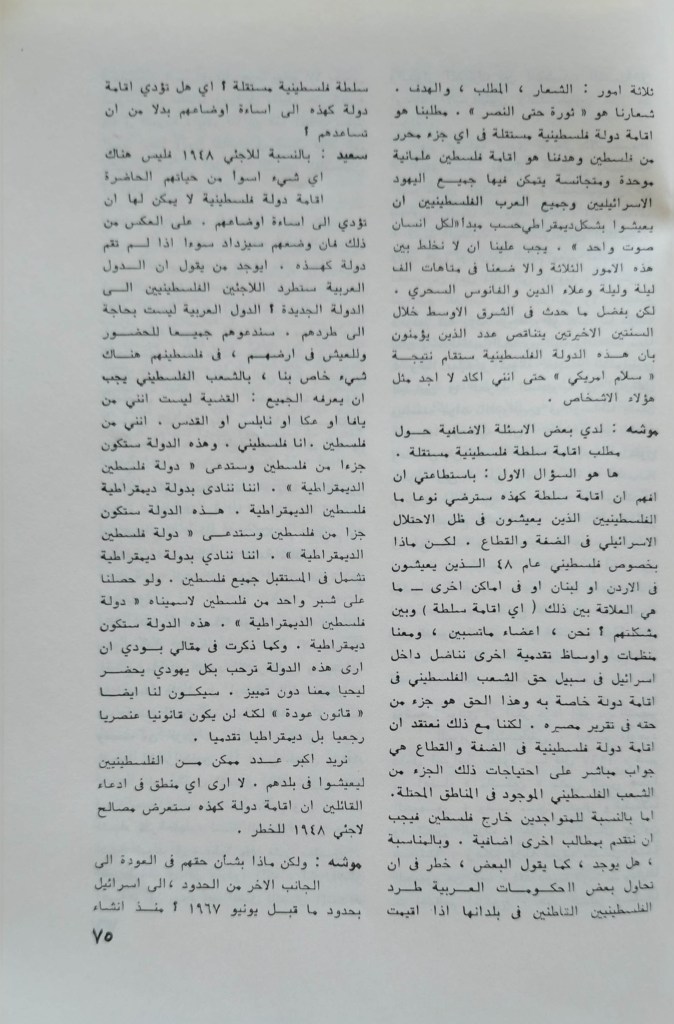 ثلاثة امور : الشعار ، المطلب ، والهدف .
شعارنا هو « ثورة حتى النصر » . مطلبنا هو
اقامة دولة فلسطينية مستقلة فى اي جزء محرر
من فلسطين وهدفنا هو اقامة فلسطين علمانية
موحدة ومتجانسة يتمكن فيها جميع اليهود
الاسرائيليين وجميع العرب الفلسطينيين ان
يعيشوا بشكل ديمقراطي حسب مبدا «لكل انسان
صوت واحد » . يجب علينا ان لا نخلط بين
هذه الامور الثلاثة والا ضعنا في متاهات الف
ليلة وليلة وعلاء الدين والفانوس السحري .
لكن بفضل ما حدث في الشرق الاوسط خلال
السنتين الاخيرتين يتناقص عدد الذين يؤمنون
بان هذه الدولة الفلسطينية ستقام نتيجة
« سلام امريكي » حتى انني اكاد لا اجد مثل
هؤلاء الاشخاص .
موشه : لدي بعض الاسئلة الاضافية حول
مطلب اقامة سلطة فلسطينية مستقلة .
ها هو السؤال الاول : باستطاعتي ان
افهم ان اقامة سلطة كهذه سترضي نوعا ما
الفلسطنيين الذين يعيشون فى ظل الاحتلال
الاسرائيلي فى الضفة والقطاع . لكن ماذا
بخصوص فلسطيني عام ٤٨ الذين يعيشون
فى الاردن او لبنان او فى اماكن اخرى ــ ما
هي العلاقة بين ذلك ( اي اقامة سلطة ) وبين
مشكلتهم أ نحن ، اعضاء ماتسبين ، ومعنا
منظمات واوساط تقدمية اخرى نناضل داخل
اسرائيل فى سبيل حق الشعب الفلسطيني فى
اقامة دولة خاصة به وهذا الحق هو جزء من
حقه فى تقرير مصيره . لكننا مع ذلك نعتقد ان
اقامة دولة فلسطينية فى الضفة والقطاع هي
جواب مباشر على احتياجات ذلك الجزء من
الشعب الفلسطيني الموجود فى المناطق المحتلة.
اما بالنسبة للمتواجدين خارج فلسطين فيجب
ان نتقدم بمطالب اخرى اضافية . وبالمناسبة
، هل يوجد ، كما يقول البعض ، خطر فى ان
تحاول بعض الحكومات العربية طرد
الفلسطينيين القاطنين فى بلدانها اذا اقيمت
سلطة فلسطينية مستقلة أ اي هل تؤدي اقامة
دولة كهذه الى اساءة اوضاعهم بدلا من ان
تساعدهم أ
سعيد : بالنسبة للاجئي ١٩٤٨ فليس هناك
اي شيء اسوأ من حياتهم الحاضرة
اقامة دولة فلسطينية لا يمكن لها ان
تؤدي الى اساءة اوضاعهم . على العكس من
ذلك فان وضعهم سيزداد سوءا اذا لم تقم
دولة كهذه . ايوجد من يقول ان الدول
العربية ستطرد اللاجئين الفلسطينيين الى
الدولة الجديدة أ الدول العربية ليست بحاجة
الى طردهم . سندعوهم جميعا للحضور
وللعيش فى ارضهم ، فى فلسطينهم هناك
شيء خاص بنا ، بالشعب الفلسطيني يجب
ان يعرفه الجميع : القضية ليست انني من
يافا او عكا او نابلس او القدس . انني من
فلسطين .انا فلسطيني . وهذه الدولة ستكون
جزءا من فلسطين وستدعى « دولة فلسطين
الديمقراطية » . اننا ننادى بدولة ديمقراطية
فلسطين الديمقراطية . هذه الدولة ستكون
جزا من فلسطين وستدعى « دولة فلسطين
الديمقراطية » . اننا ننادي بدولة ديمقراطية
تشمل فى المستقبل جميع فلسطين . ولو حصلنا
على شبر واحد من فلسطين لاسميناه « دولة
فلسطين الديمقراطية » . هذه الدولة ستكون
ديمقراطية . وكما ذكرت فى مقالي بودي ان
ارى هذه الدولة ترحب بكل يهودي يحضر
ليحيا معنا دون تمييز . سيكون لنا ايضا
« قانون عودة » لكنه لن يكون قانونيا عنصريا
رجعيا بل ديمقراطيا تقدميا .
نريد اكبر عدد ممكن من الفلسطينيين
ليعيشوا فى بلدهم . لا ارى اي منطق فى ادعاء
القائلين ان اقامة دولة كهذه ستعرض مصالح
لاجئي ١٩٤٨ للخطر .
موشه : ولكن ماذا بشأن حقهم فى العودة الى
الجانب الاخر من الحدود ،الى اسرائيل
بحدود ما قبل يونيو ١٩٦٧ أ منذ انشاء
٧٥